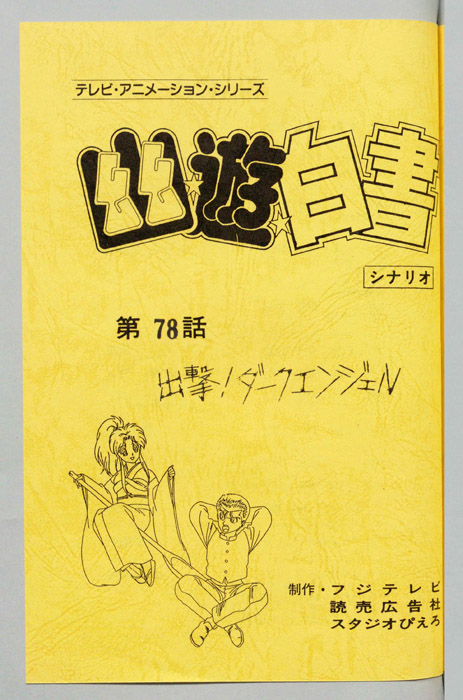 テレビ・アニメーション・シリーズ
幽☆遊☆白書
シナリオ
第 78 話
出撃！ダークエンジェル
制作・フジテレビ
読売広告社
スタジオぴえろ